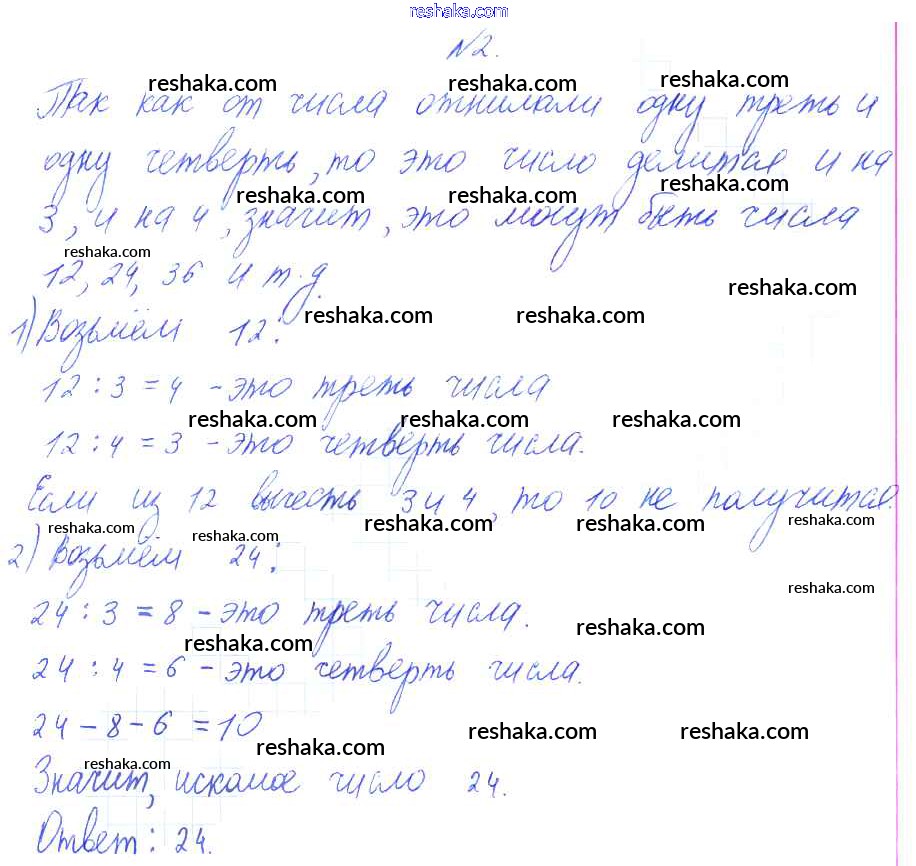 reshaka.com
№2.
reshaka.com reshaka.com reshaka.com
Так как от числа отнимали одну треть и
одну четверть, то это число делится и на
reshaka.com reshaka.com reshaka.com
3, и на 4, значит, это могут быть числа
reshaka.com
12, 24, 36 и т.д.
reshaka.com
reshaka.com reshaka.com
1) Возьмём 12:
12 : 3 = 4 - это треть числа
reshaka.com reshaka.com reshaka.com
12 : 4 = 3 - это четверть числа.
Если из 12 вычесть 3 и 4, то 10 не получится.
reshaka.com reshaka.com reshaka.com reshaka.com reshaka.com
2) Возьмём 24:
reshaka.com
24 : 3 = 8 - это треть числа.
reshaka.com reshaka.com
24 : 4 = 6 - это четверть числа.
24 - 8 - 6 = 10
reshaka.com reshaka.com reshaka.com
reshaka.com
Значит, искомое число 24.
Ответ: 24.